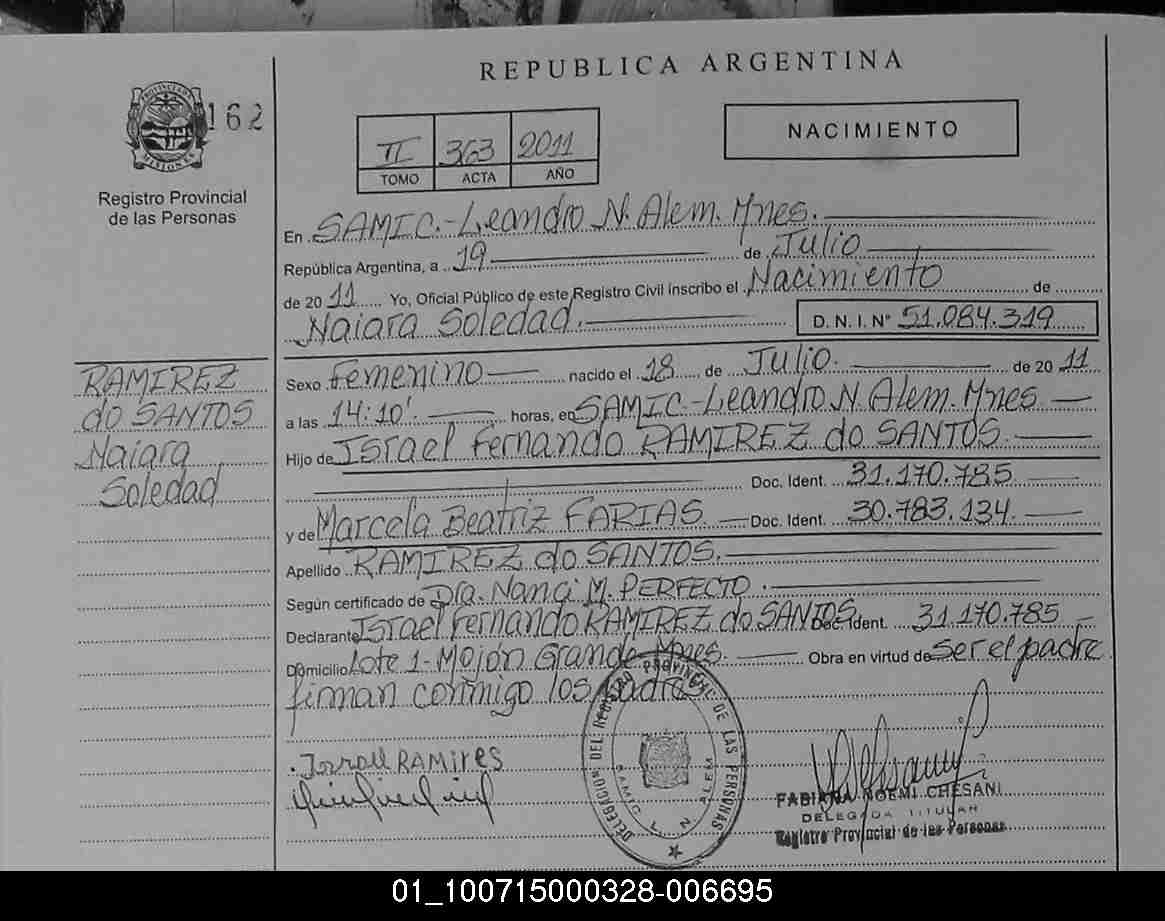 REPUBLICA ARGENTINA
PROVINCIA DE MISIONES
162
Registro Provincial
de las Personas
II 363 2011
TOMO ACTA AÑO
NACIMIENTO
En SAMIC.-Leandro N. Alem. Mnes.
República Argentina, a 19 de Julio
de 2011 Yo, Oficial Público de este Registro Civil inscribo el Nacimiento de
Naiara Soledad. D. N. I. N° 51.084.319
RAMIREZ
do SANTOS
Naiara
Soledad
Sexo Femenino nacido el 18 de Julio. de 2011
a las 14:10'. horas, en SAMIC.-Leandro N. Alem. Mnes
Hijo de Israel Fernando RAMIREZ do SANTOS.
Doc. Ident. 31.170.785
y de Marcela Beatriz FARIAS Doc. Ident. 30.783.134.
Apellido RAMIREZ do SANTOS.
Según certificado de Dra. Nanci M. PERFECTO.
Declarante Israel Fernando RAMIREZ do SANTOS Doc. Ident. 31.170.785
Domicilio Lote 1-Mojón Grande-Mnes. Obra en virtud de ser el padre
firman conmigo los Padres
RAMIRES
DELEGACION DEL REGISTRO PROVINCIAL DE LAS PERSONAS
SAMIC L. N. ALEM
FABIANA NOEMI CHESANI
DELEGADA TITULAR
Registro Provincial de las Personas
01_100715000328-006695